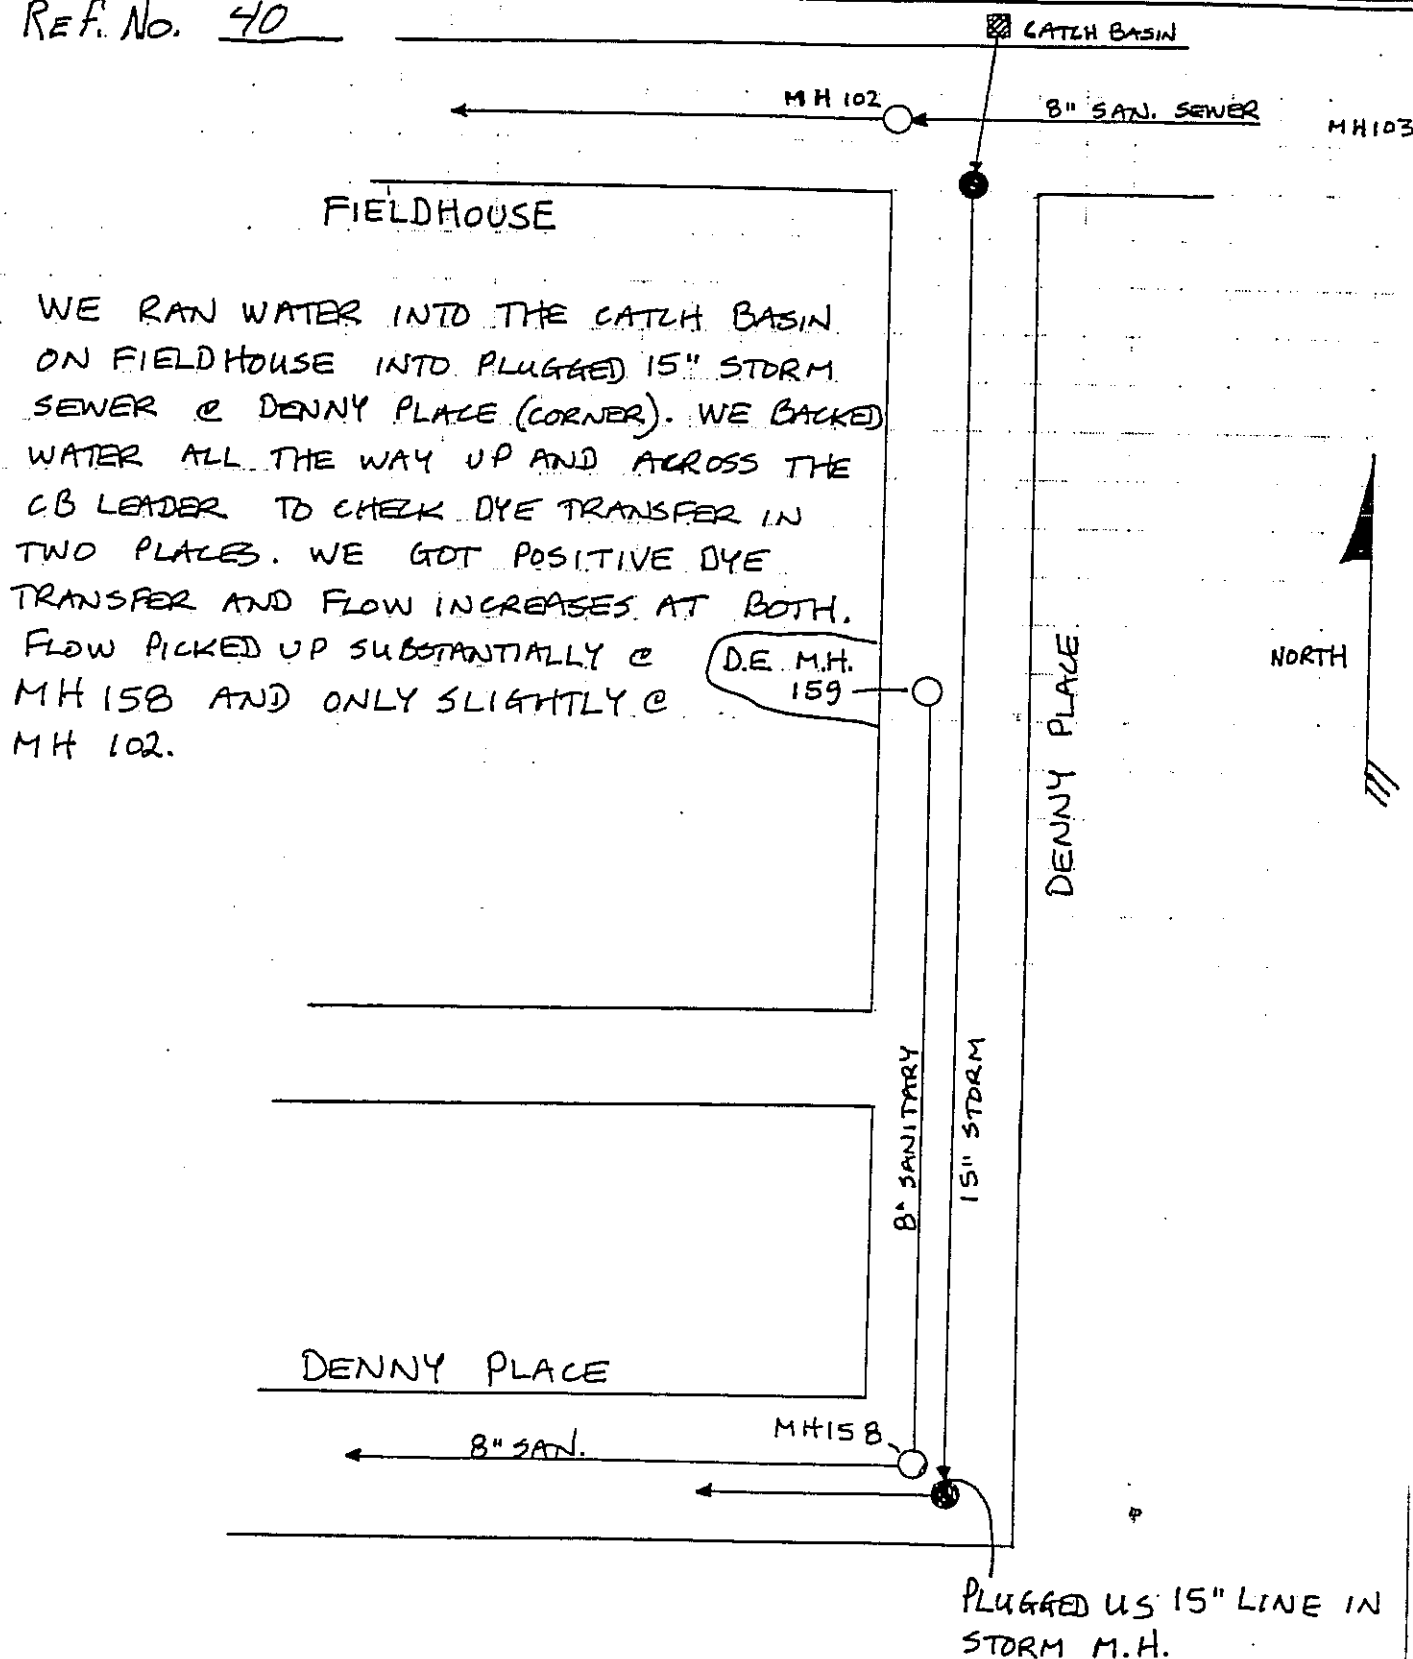 REF. No. 40
CATCH BASIN
MH 102
8" SAN. SEWER
MH103
FIELDHOUSE
WE RAN WATER INTO THE CATCH BASIN
ON FIELDHOUSE INTO PLUGGED 15" STORM
SEWER @ DENNY PLACE (CORNER). WE BACKED
WATER ALL THE WAY UP AND ACROSS THE
CB LEADER TO CHECK DYE TRANSFER IN
TWO PLACES. WE GOT POSITIVE DYE
TRANSFER AND FLOW INCREASES AT BOTH.
FLOW PICKED UP SUBSTANTIALLY @
MH 158 AND ONLY SLIGHTLY @
MH 102.
D.E. M.H.
159
DENNY PLACE
NORTH
8" SANITARY
15" STORM
DENNY PLACE
8" SAN.
MH158
PLUGGED US 15" LINE IN
STORM M.H.